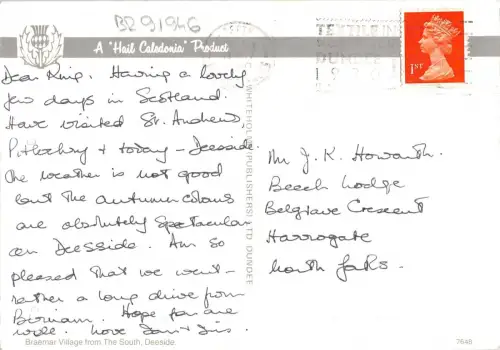 BR 91946
A "Hail Caledonia" Product
Dear King. Having a lovely
few days in Scotland.
Have visited St. Andrews,
Pitlochry + today - Deeside.
The weather is not good
but the autumn colours
are absolutely spectacular
on Deeside. Am so
pleased that we went -
rather a long drive from
Birnam. Hope you are
well. Love
Braemar Village from The South, Deeside.
WHITEHOLME (PUBLISHERS) LTD DUNDEE
DUNDEE
1ST
Mr J. K. Howarth.
Beech Lodge
Belgrave Crescent
Harrogate
North Yorks.
7648